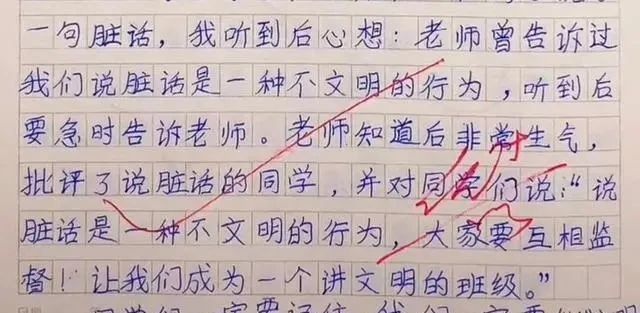 一句脏话，我听到后心想：老师曾告诉过
我们说脏话是一种不文明的行为，听到后
要急时告诉老师。老师知道后非常生气，
批评了说脏话的同学，并对同学们说：“说
脏话是一种不文明的行为，大家要互相监
督！让我们成为一个讲文明的班级。”